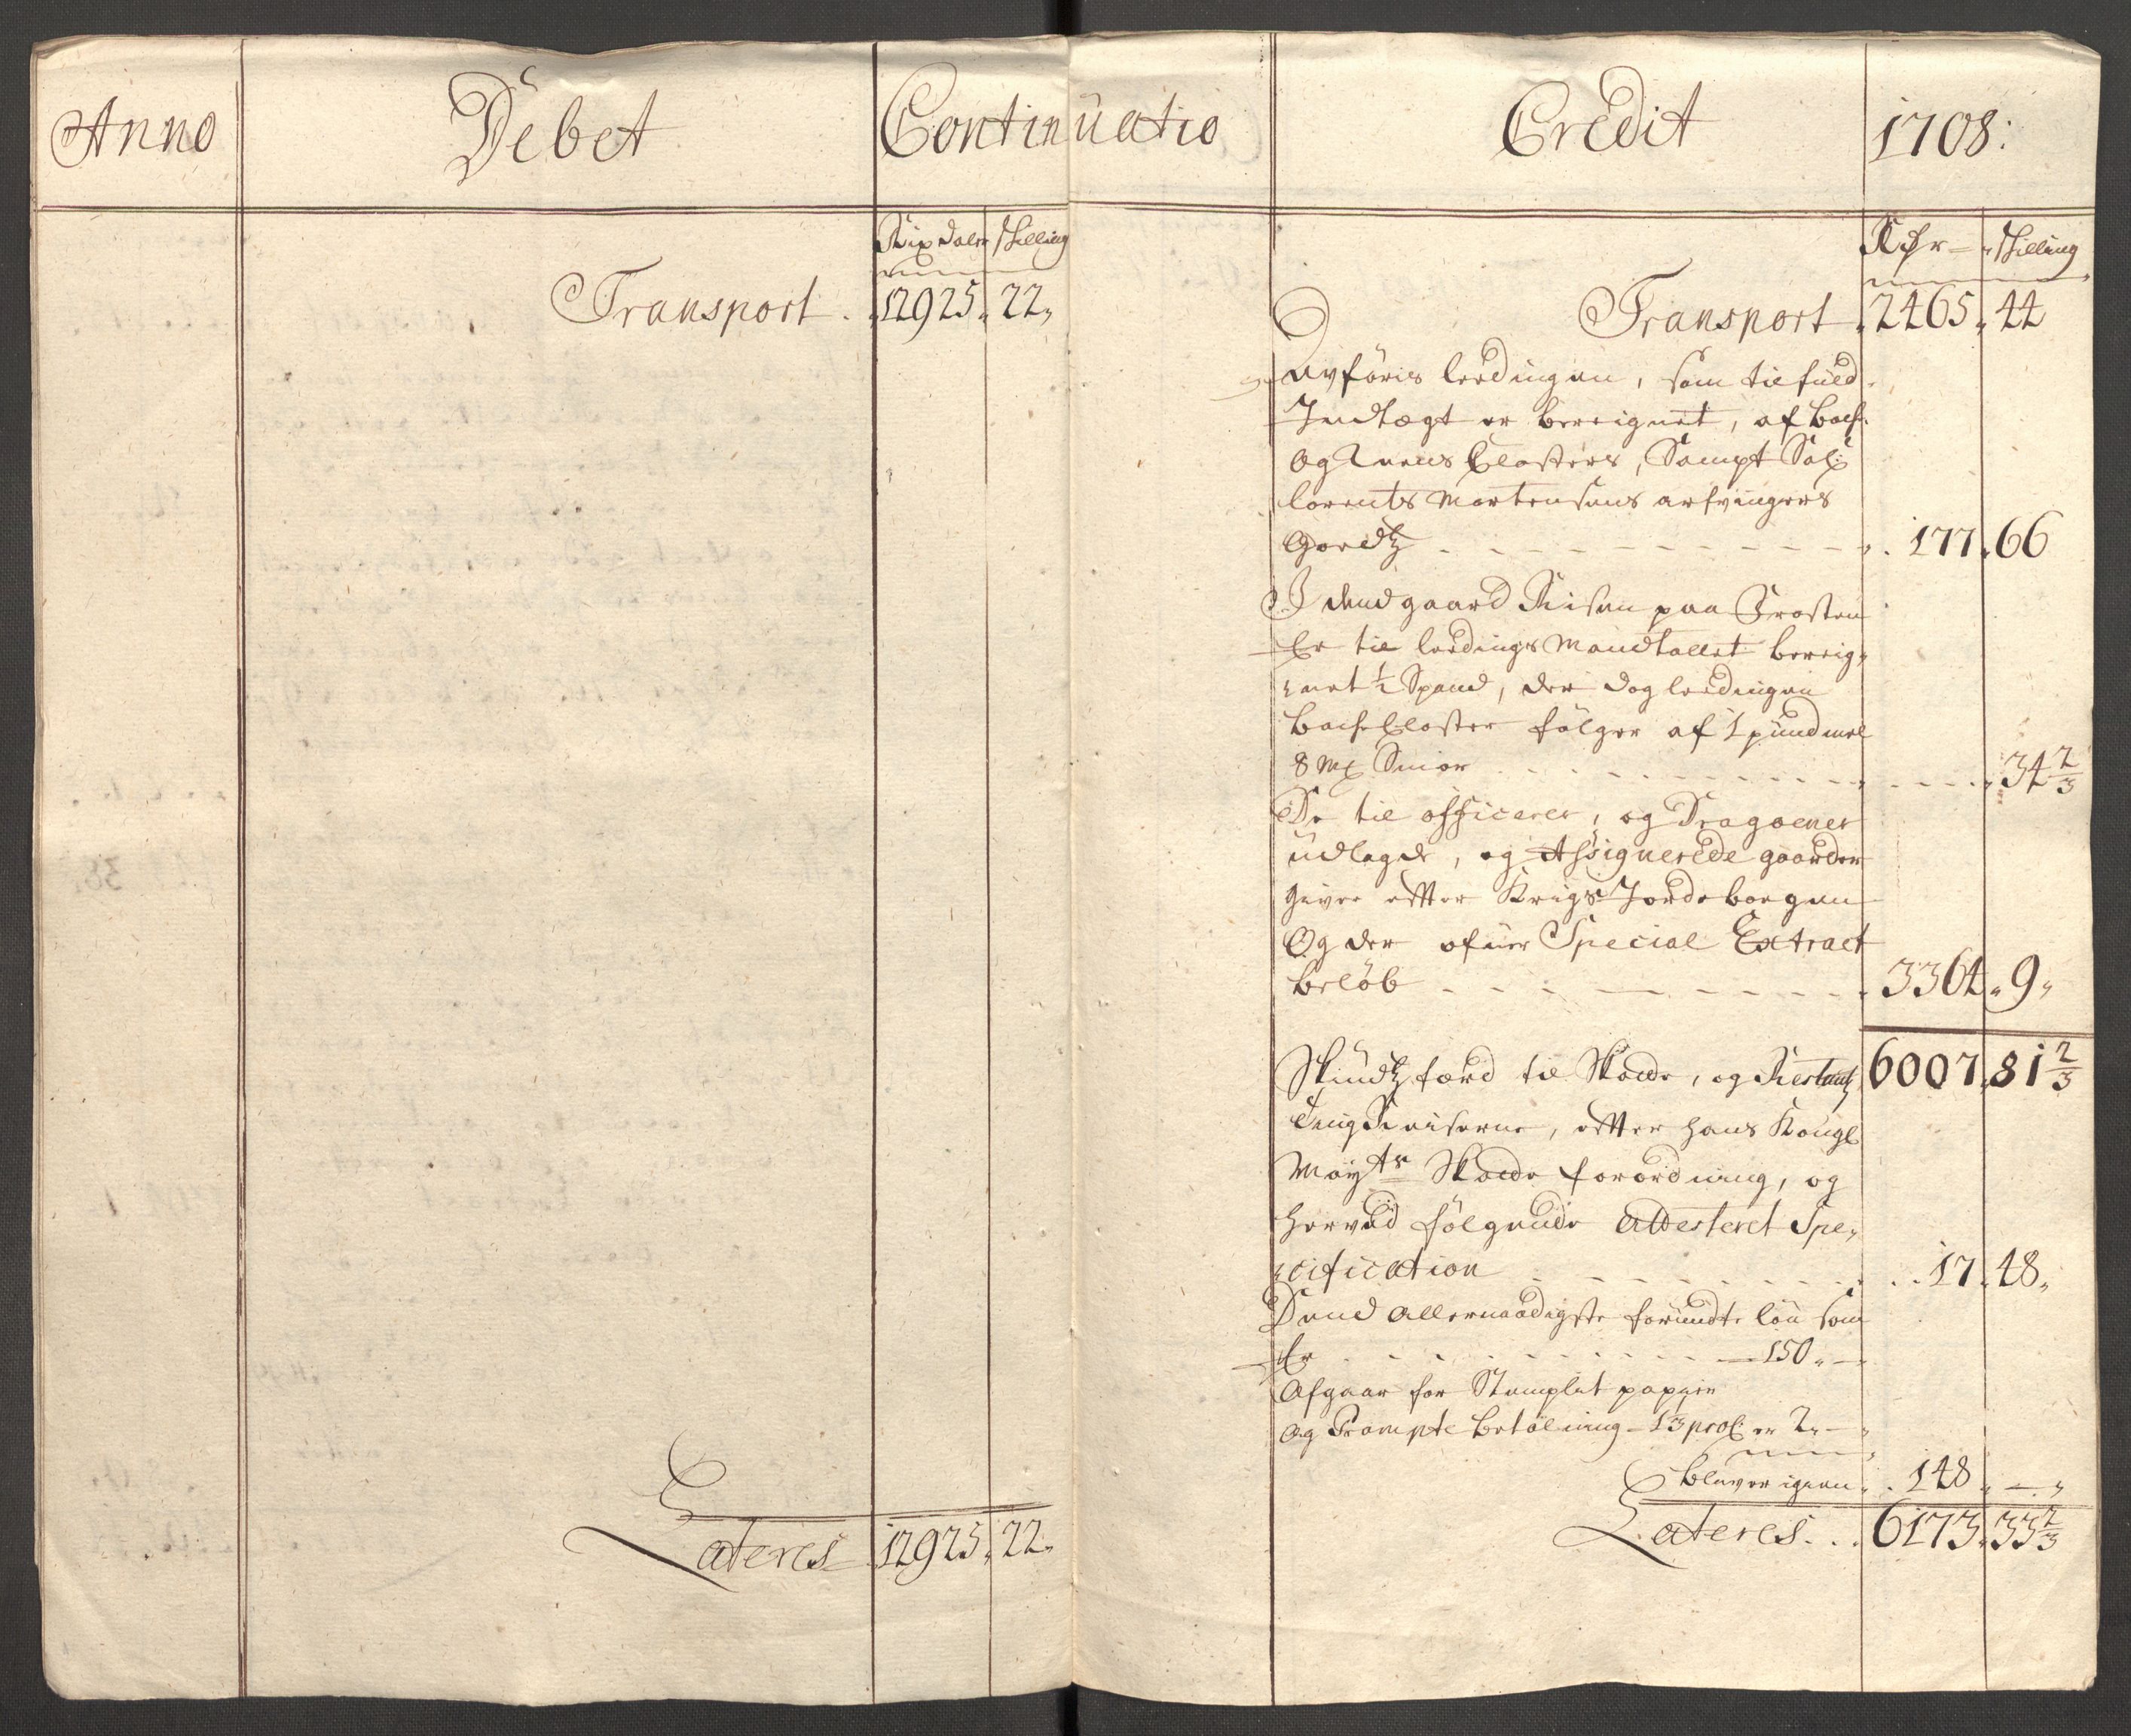 Anno Debet Continuatio Credit 1708:
Rixdaler skilling
Transport . 12925 . 22
Rdr skilling
Transport . 2465 . 44
Avføris leedingen, som til fuld
Indtægt er bereignet, af Bach
og Reens Closters, Sampt Sal:
Lorents Mortensens arfvingers
Goedtz . 177 . 66
I dend gaard Risen paa Frosten
Er til leedings Mandtallet bereig-
net ½ Spand, der dog leedingen
Bache Closter følger af 1 pund meel
8 mk Smior . 34 2/3
De til officerer, og Dragoener
udlagde, og Assignerede gaarder
giver efter Krigs Jordebogen
Og der ofver Special Extract
beløb . 3364 . 9
6007 . 81 2/3
Skiudtzfærd til Skatte, og Restantz
Ting Reiserne, efter hans Kongl
Mayts Skatte forordning, og
herved følgende Attesteret Spe-
cification . 17 . 48
Dend allernaadigste forundte løn som
Er 150
Afgaar for Stemplet pappir
og Prompte betalning - 1 3 proc er 2
bliver igien . 148 . -
Lateres 12925 . 22
Lateres . . . 6173 . 33 2/3